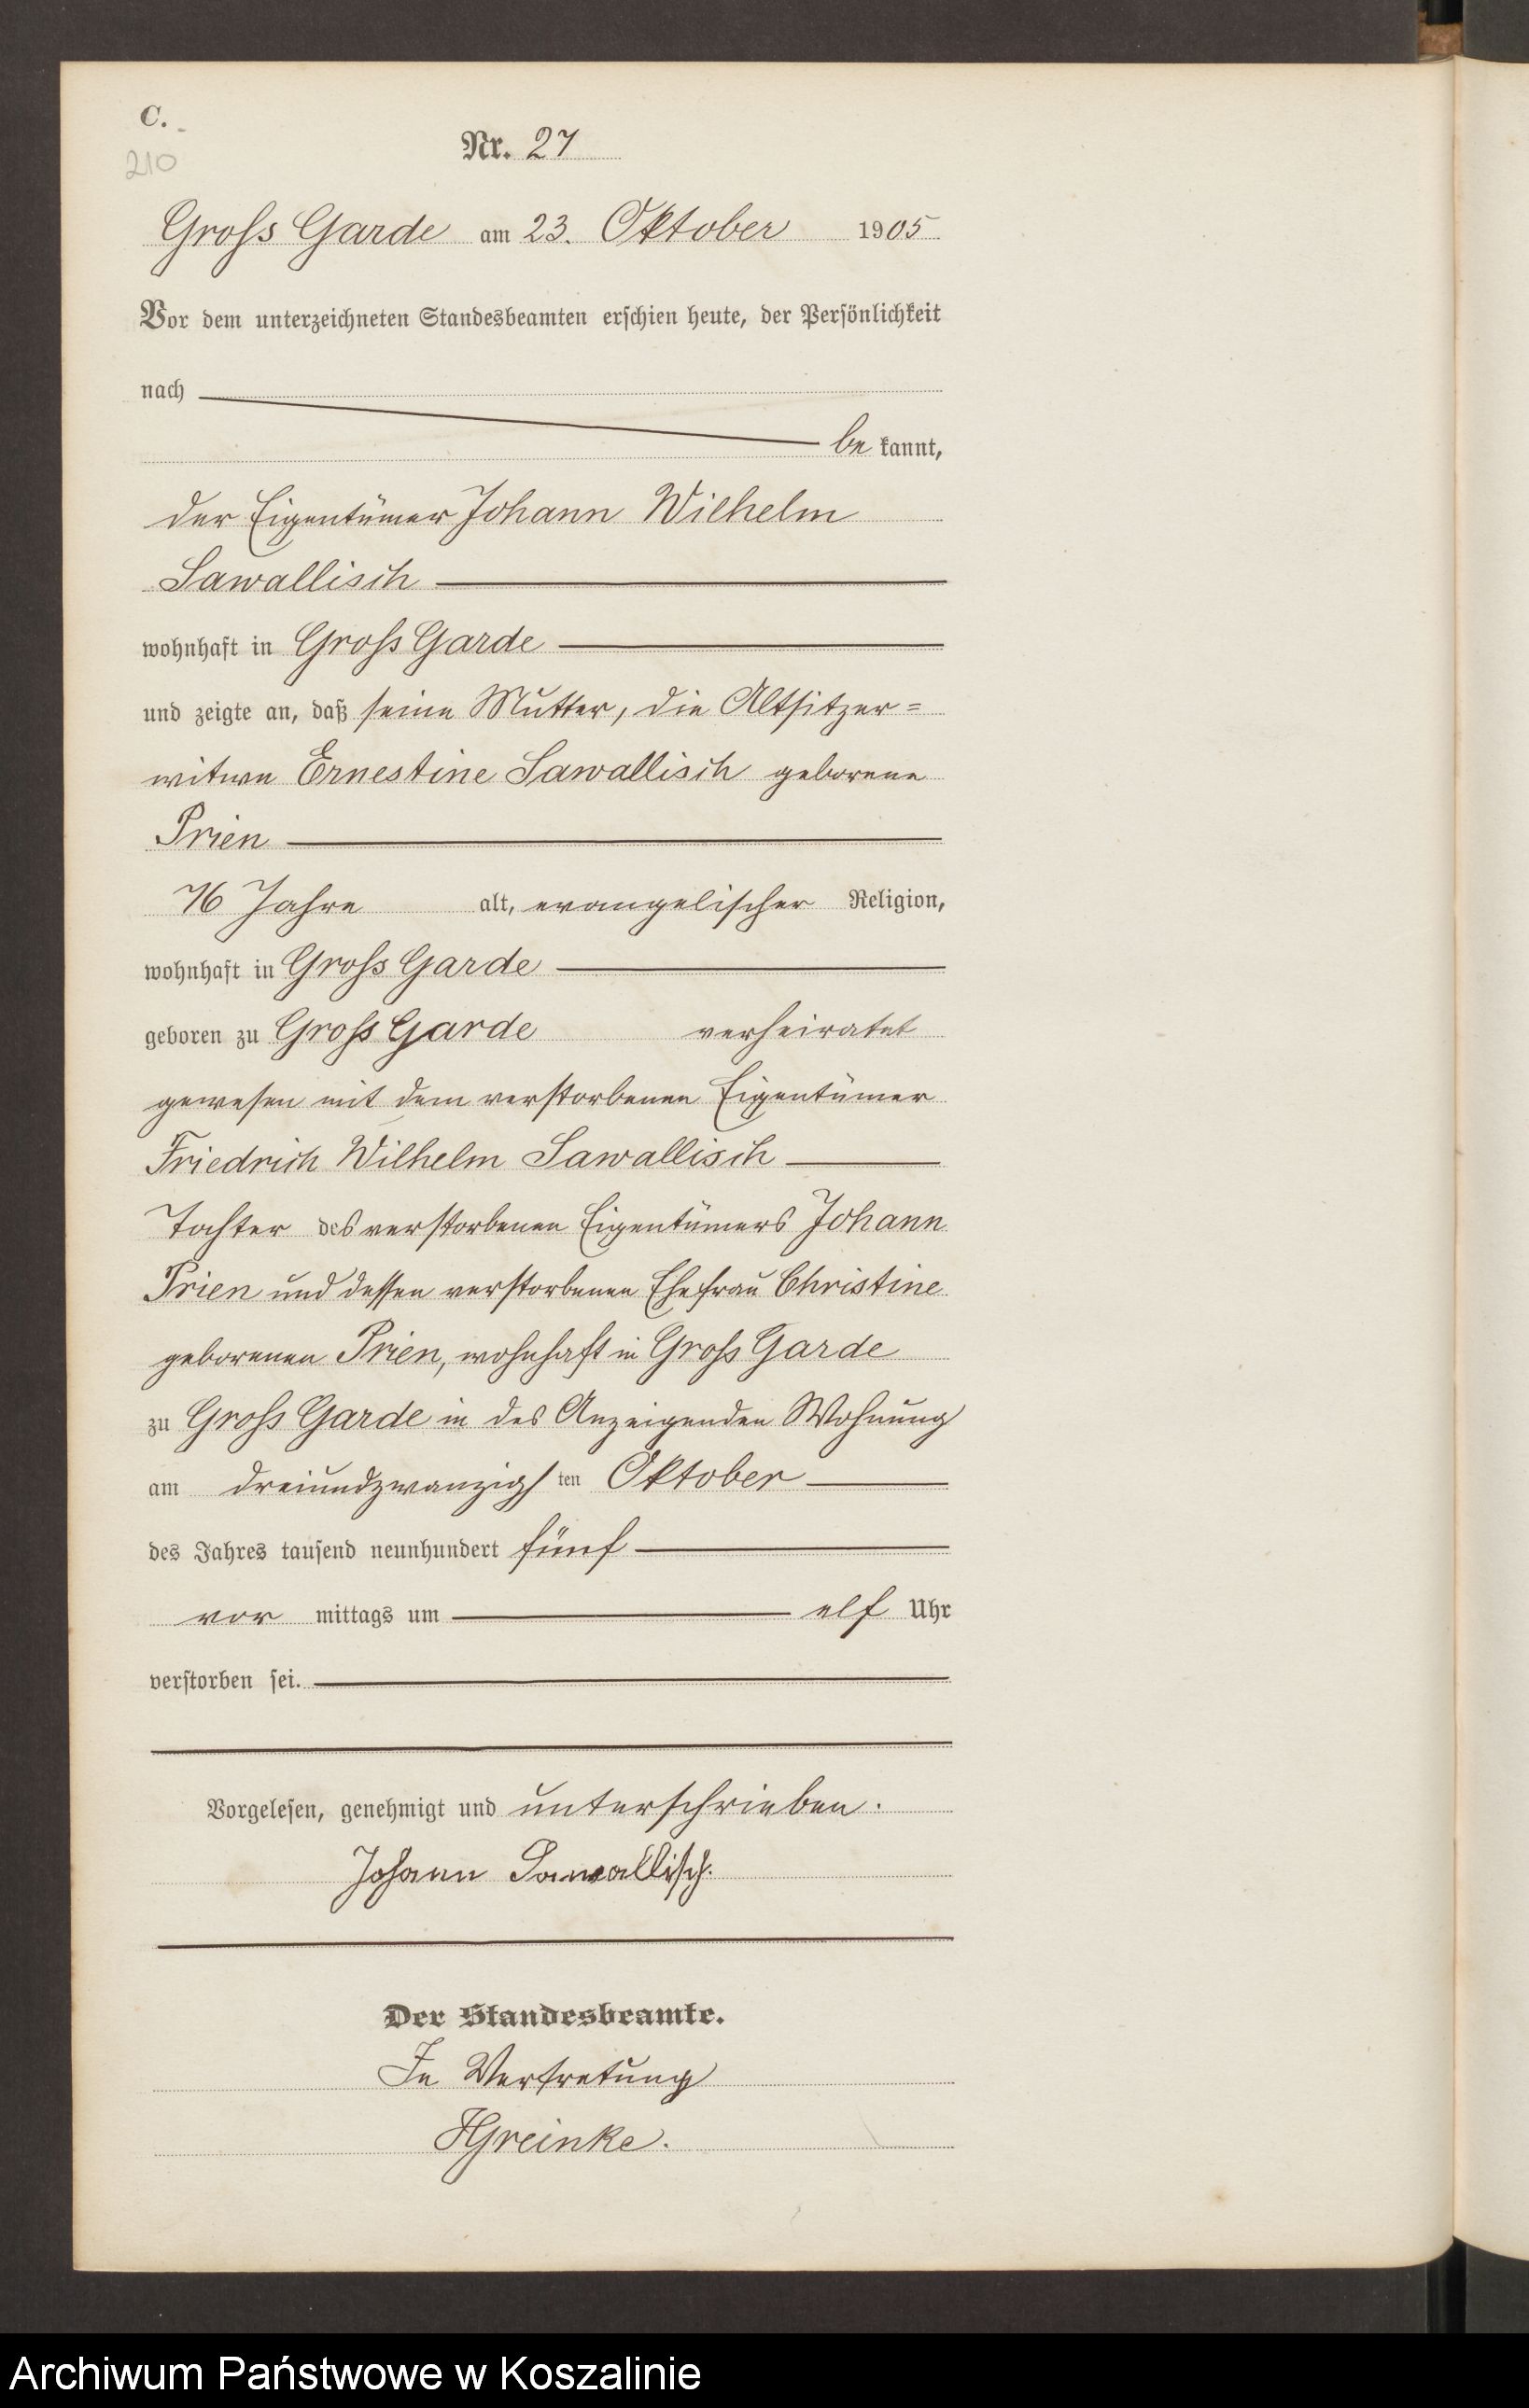 C.
210
Nr. 27
Gross Garde am 23. Oktober 1905
Vor dem unterzeichneten Standesbeamten erschien heute, der Persönlichkeit
nach
be kannt,
der Eigentümer Johann Wilhelm
Sawallisch
wohnhaft in Gross Garde
und zeigte an, daß seine Mutter, die Altsitzer=
witwe Ernestine Sawallisch geborene
Prien
76 Jahre alt, evangelischer Religion,
wohnhaft in Gross Garde
geboren zu Gross Garde verheiratet
gewesen mit dem verstorbenen Eigentümer
Friedrich Wilhelm Sawallisch
Tochter des verstorbenen Eigentümers Johann
Prien und dessen verstorbenen Ehefrau Christine
geborenen Prien, wohnhaft in Gross Garde
zu Gross Garde in des Anzeigenden Wohnung
am dreiundzwanzigsten Oktober
des Jahres tausend neunhundert fünf
vor mittags um elf Uhr
verstorben sei.
Vorgelesen, genehmigt und unterschrieben.
Johann Sawallisch.
Der Standesbeamte.
In Vertretung
HGreinke.
Archiwum Państwowe w Koszalinie